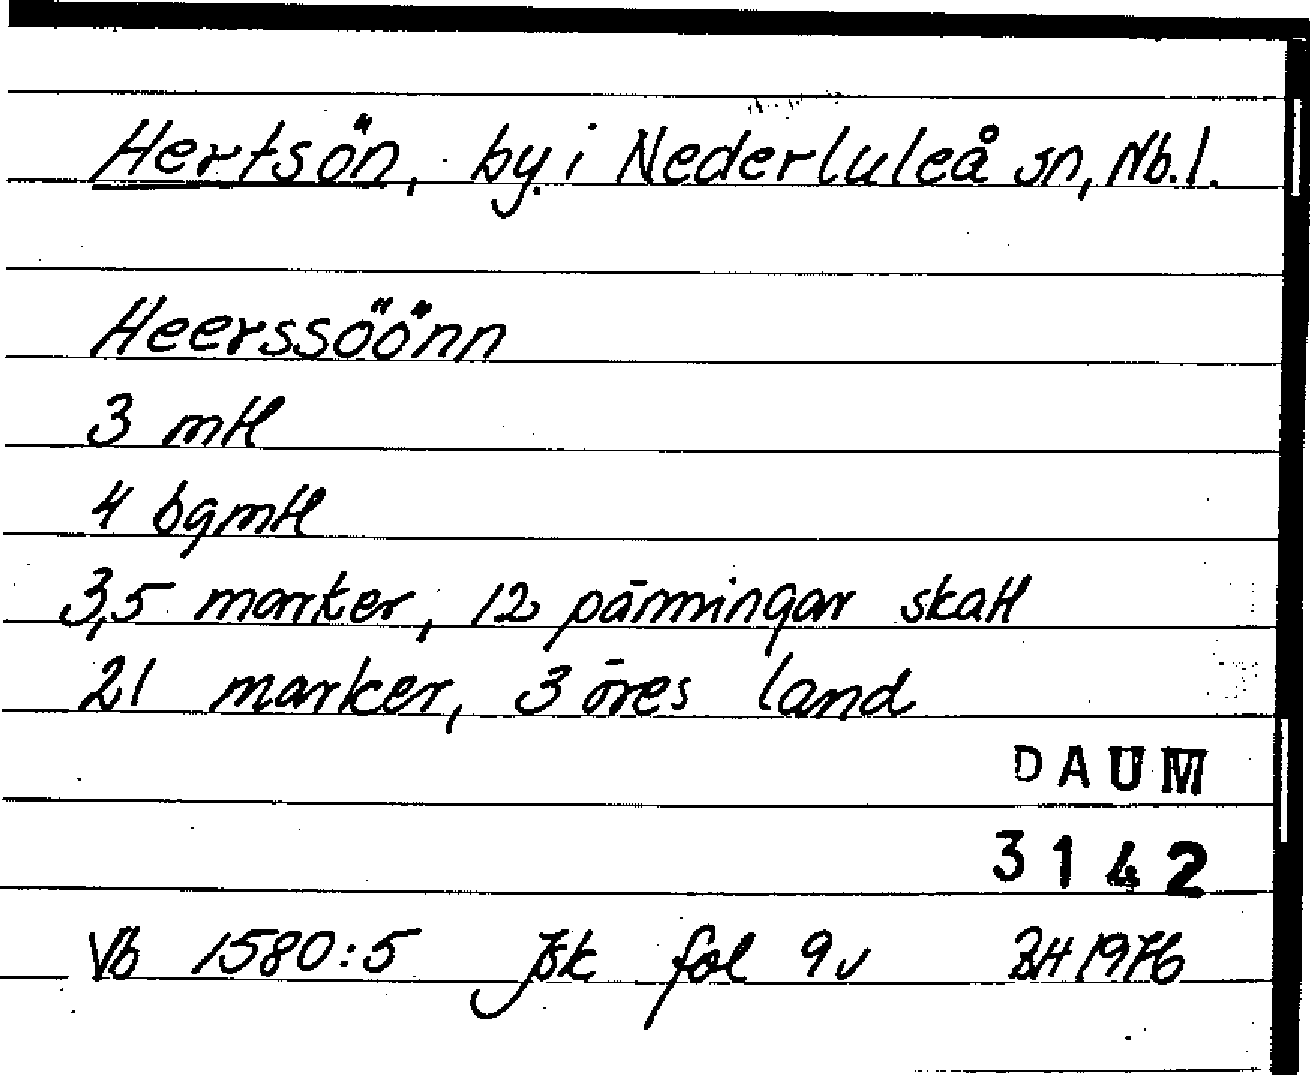 Hertsön, by i Nederluleå sn, Nb.l.
Heerssöönn
3 mtl
4 bgmtl
3,5 marker, 12 pänningar skatt
21 marker, 3 öres land
DAUM
3142
Vb 1580:5 Jbk fol 9v BH 1976